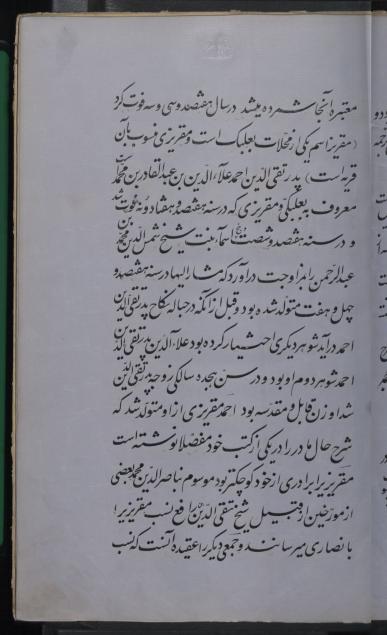 معتبره آنجا شمرده میشد در سال هفتصد و سی و سه فوت کرد
(مقریز اسم یکی از محلات بعلبک است و مقریزی منسوب بآن
قریه است) پدر تقی الدین احمد علاء الدین بن عبدالقادر بن محمد
معروف ببعلبکی و مقریزی که در سنه هفتصد و هفتاد و نه فوت شد
و در سنه هفتصد و شصت اسماء بنت شیخ شمس الدین محمد بن
عبدالرحمن را بمزاوجت درآورد که مشار الیها در سنه هفتصد و
چهل و هفت متولد شده بود و قبل از آنکه در حباله نکاح پدر تقی الدین
احمد در آید شوهر دیگری اختیار کرده بود علاء الدین پدر تقی الدین
احمد شوهر دوم او بود و در سن هیجده سالگی زوجه پدر تقی الدین
شد او زن قابل و مقدسه بود احمد مقریزی از او متولد شد که
شرح حال مادر را در یکی از کتب خود مفصلا نوشته است
مقریزی را برادری از خود کوچکتر بود موسوم بناصر الدین محمد بعضی
از مورخین از قبیل شیخ متقی الدین رافع نسب مقریزی را
با نصاری میرسانند و جمعی دیگر را عقیده آنست که نسب